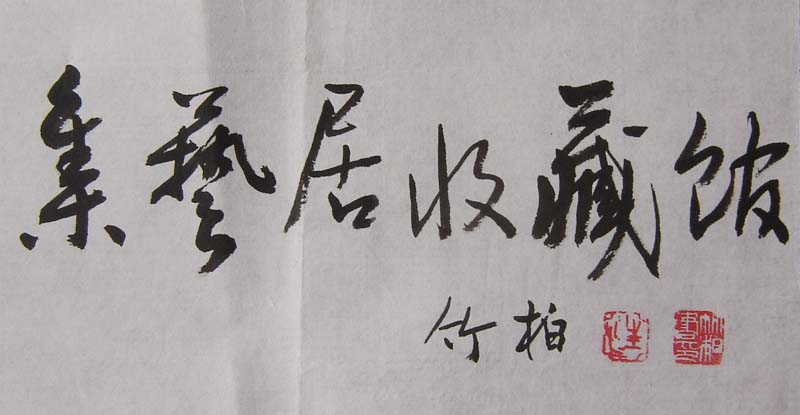 集藝居收藏館
竹柏